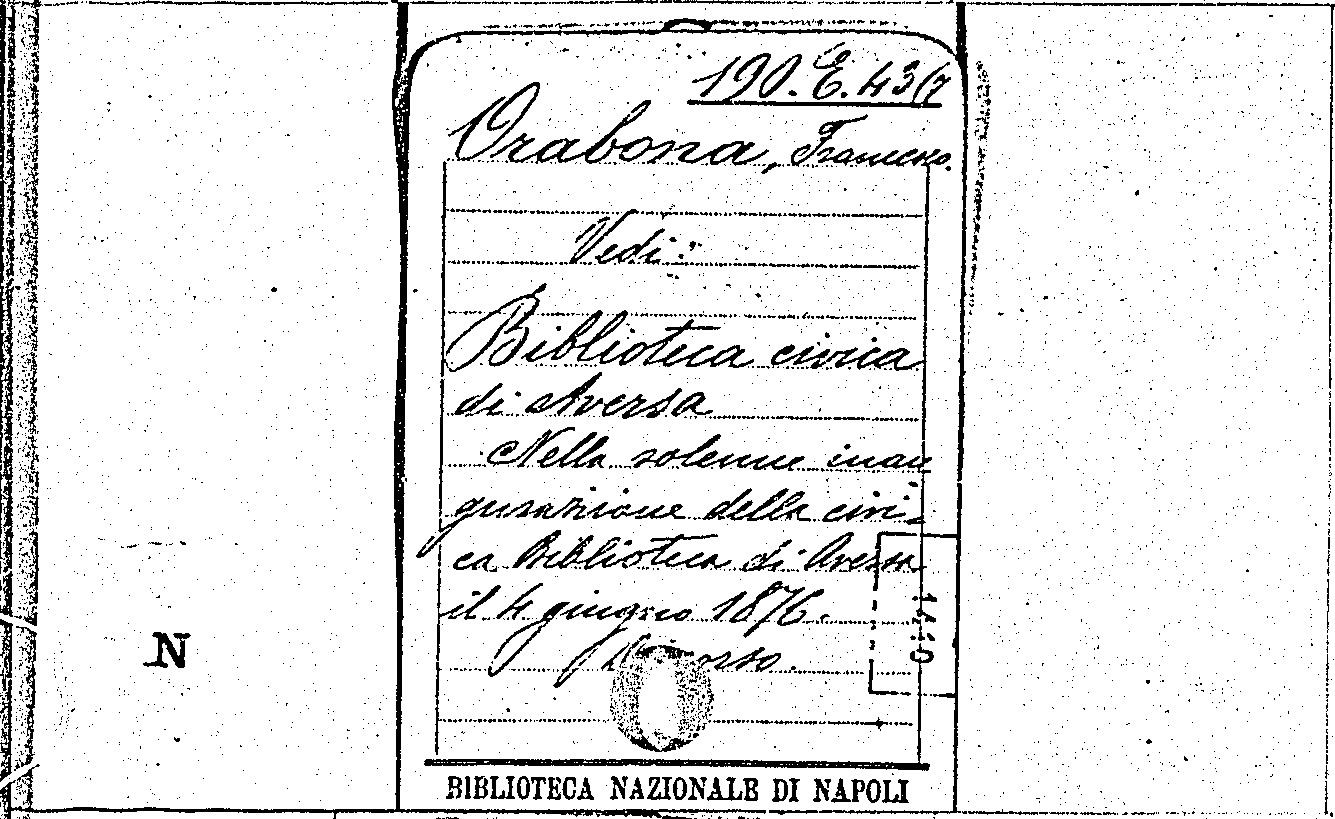 190. E. 43/7
Orabona, Francesco.
Vedi:
Biblioteca civica
di Aversa
Nella solenne inau
gurazione della civi-
ca Biblioteca di Aversa
il 4 giugno 1876.
N
BIBLIOTECA NAZIONALE DI NAPOLI